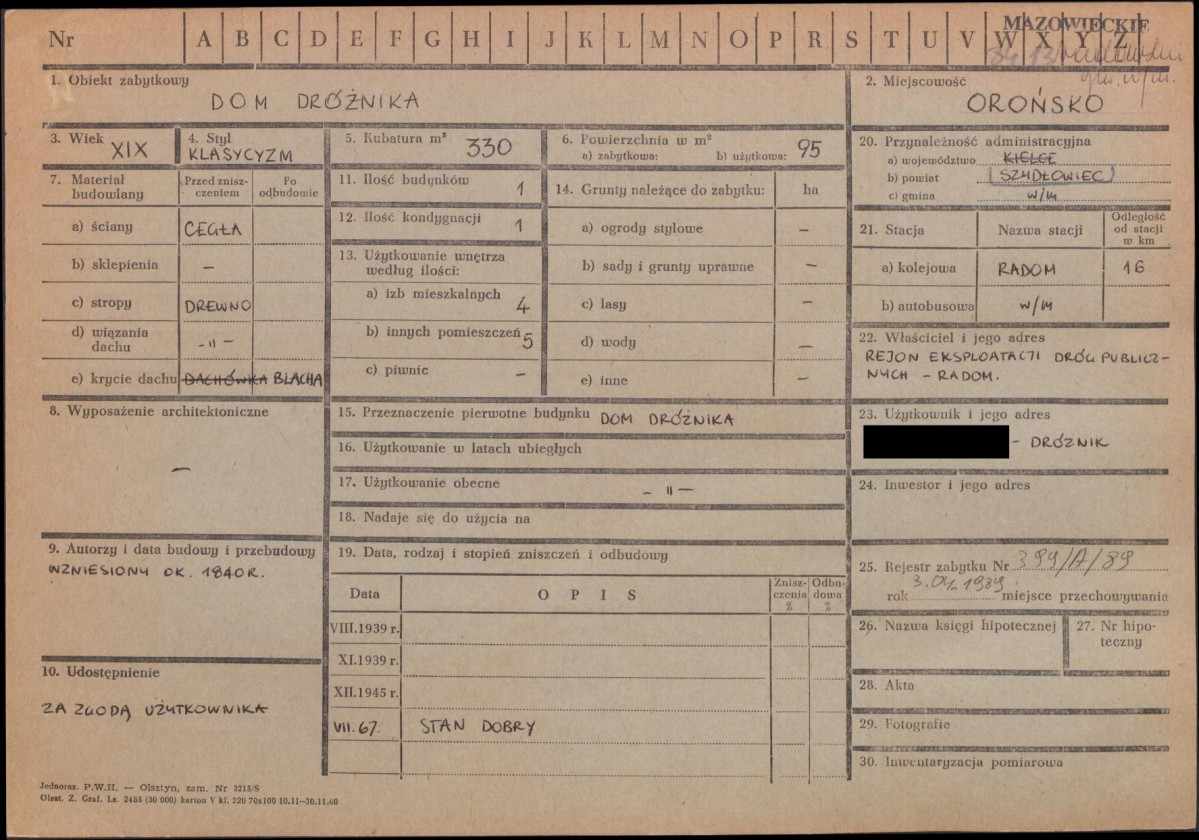 Nr A B C D E F G H I J K L M N O P R S T U V W X Y Z
MAZOWIECKIE
1. Obiekt zabytkowy
DOM DRÓŻNIKA
2. Miejscowość
OROŃSKO
3. Wiek XIX
4. Styl
KLASYCYZM
5. Kubatura m³ 330
6. Powierzchnia w m²
a) zabytkowa: b) użytkowa: 95
20. Przynależność administracyjna
a) województwo KIELCE
b) powiat SZYDŁOWIEC
c) gmina w/m
7. Materiał budowlany
Przed zniszczeniem
Po odbudowie
a) ściany CEGŁA
b) sklepienia –
c) stropy DREWNO
d) wiązania dachu -"-
e) krycie dachu DACHÓWKA BLACHA
11. Ilość budynków 1
12. Ilość kondygnacji 1
13. Użytkowanie wnętrza
według ilości:
a) izb mieszkalnych 4
b) innych pomieszczeń 5
c) piwnic –
14. Grunty należące do zabytku: ha
a) ogrody stylowe –
b) sady i grunty uprawne –
c) lasy –
d) wody –
e) inne –
21. Stacja Nazwa stacji Odległość od stacji w km
a) kolejowa RADOM 16
b) autobusowa w/m
22. Właściciel i jego adres
REJON EKSPLOATACJI DRÓG PUBLICZ-
NYCH – RADOM.
8. Wyposażenie architektoniczne
–
15. Przeznaczenie pierwotne budynku DOM DRÓŻNIKA
16. Użytkowanie w latach ubiegłych
17. Użytkowanie obecne – " –
18. Nadaje się do użycia na
23. Użytkownik i jego adres
- DRÓŻNIK
24. Inwestor i jego adres
9. Autorzy i data budowy i przebudowy
WZNIESIONY OK. 1840 R.
19. Data, rodzaj i stopień zniszczeń i odbudowy
Data OPIS Zniszczenia % Odbudowa %
VIII.1939 r.
XI.1939 r.
XII.1945 r.
VII.67. STAN DOBRY
25. Rejestr zabytku Nr 399/A/89
rok miejsce przechowywania
26. Nazwa księgi hipotecznej
27. Nr hipoteczny
10. Udostępnienie
ZA ZGODĄ UŻYTKOWNIKA
28. Akta
29. Fotografie
30. Inwentaryzacja pomiarowa
Jednoraz. P.W.H. — Olsztyn, zam. Nr 3215/S
Olszt. Z. Graf. Lz. 2485 (30 000) karton V kl. 220 70x100 10.11—30.11.60